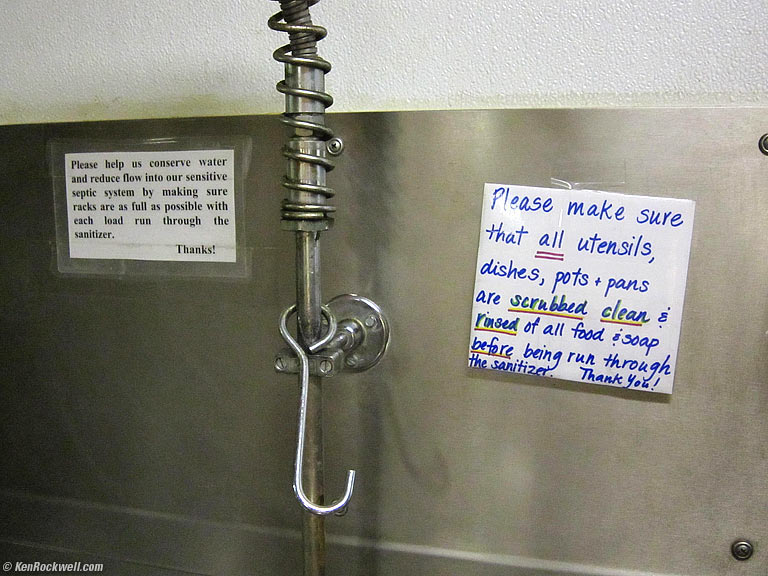 Please help us conserve water
and reduce flow into our sensitive
septic system by making sure
racks are as full as possible with
each load run through the
sanitizer.
Thanks!
Please make sure
that all utensils,
dishes, pots + pans
are scrubbed clean &
rinsed of all food & soap
before being run through
the sanitizer. Thank You!
© KenRockwell.com